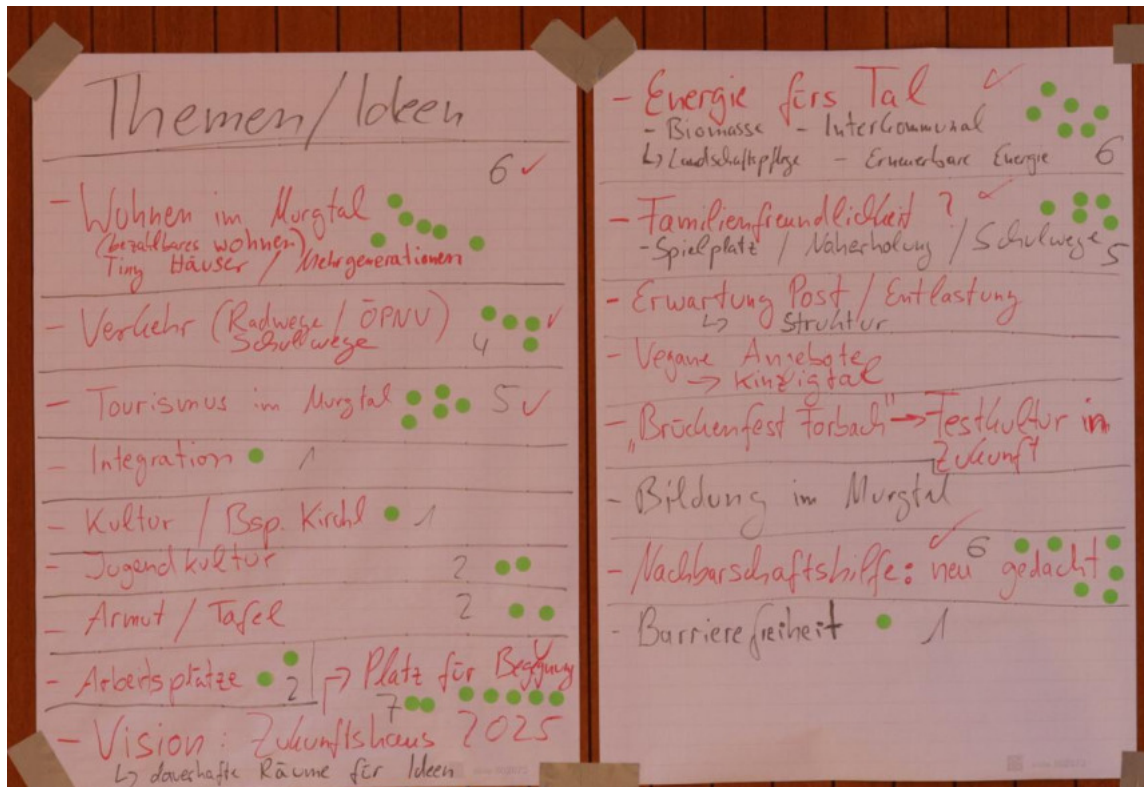 Themen/Ideen
6 ✓
- Wohnen im Murgtal
(bezahlbares wohnen)
Tiny Häuser / Mehrgenerationen
- Verkehr (Radwege / ÖPNV) ✓
Schulwege 4
- Tourismus im Murgtal 5 ✓
- Integration 1
- Kultur / Bsp. Kirchl 1
- Jugendkultur 2
- Armut / Tafel 2
- Arbeitsplätze 2
→ Platz für Begegnung ✓
7
- Vision: Zukunftshaus 2025
↳ dauerhafte Räume für Ideen
- Energie fürs Tal ✓
- Biomasse - Interkommunal
↳ Landschaftspflege - Erneuerbare Energie 6
- Familienfreundlichkeit ? ✓
- Spielplatz / Naherholung / Schulwege 5
- Erwartung Post / Entlastung
↳ Struktur
- Vegane Angebote
→ Kinzigtal
- "Brückenfest Forbach" → Festkultur in
Zukunft
- Bildung im Murgtal
✓ 6
- Nachbarschaftshilfe: neu gedacht
- Barrierefreiheit 1